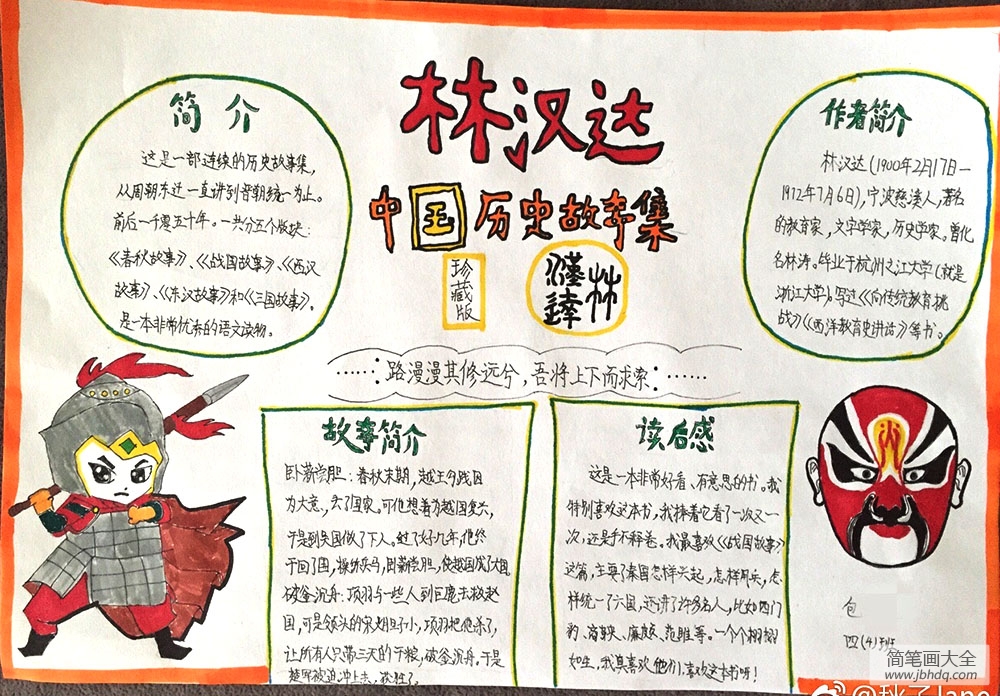 林汉达
中国历史故事集
珍藏版
林
漢達
路漫漫其修远兮，吾将上下而求索：……
简介
这是一部连续的历史故事集，
从周朝东迁一直讲到晋朝统一为止。
前后一千零五十年。一共分五个版块：
《春秋故事》、《战国故事》、《西汉
故事》、《东汉故事》和《三国故事》。
是一本非常优秀的语文读物。
作者简介
林汉达(1900年2月17日—
1972年7月6日),宁波慈溪人,著名
的教育家，文字学家，历史学家。曾化
名林涛。毕业于杭州之江大学(就是
浙江大学)。写过《向传统教育挑
战》《西洋教育史讲话》等书。
故事简介
卧薪尝胆：春秋末期，越王勾践因
为大意，丢了国家。可他想着为越国复兴，
于是到吴国做了下人。过了好几年，他终
于回了国，操练兵马，卧薪尝胆，使越国成了大国
破釜沉舟：项羽与一些人到巨鹿去救赵
国，可是领头的宋义胆子小，项羽把他杀了，
让所有人只带三天的干粮，破釜沉舟。于是
楚军被迫冲上去，获胜了。
读后感
这是一本非常好看、有意思的书。我
特别喜欢这本书，我捧着它看了一次又一
次，还是手不释卷。我最喜欢《战国故事》
这篇，主要了秦国怎样兴起，怎样用兵，怎
样统一了六国，还讲了许多名人，比如西门
豹、商鞅、廉颇、范雎等。一个个栩栩
如生，我真喜欢他们，喜欢这本书呀！
包
四(4)班
简笔画大全
www.jbhdq.com